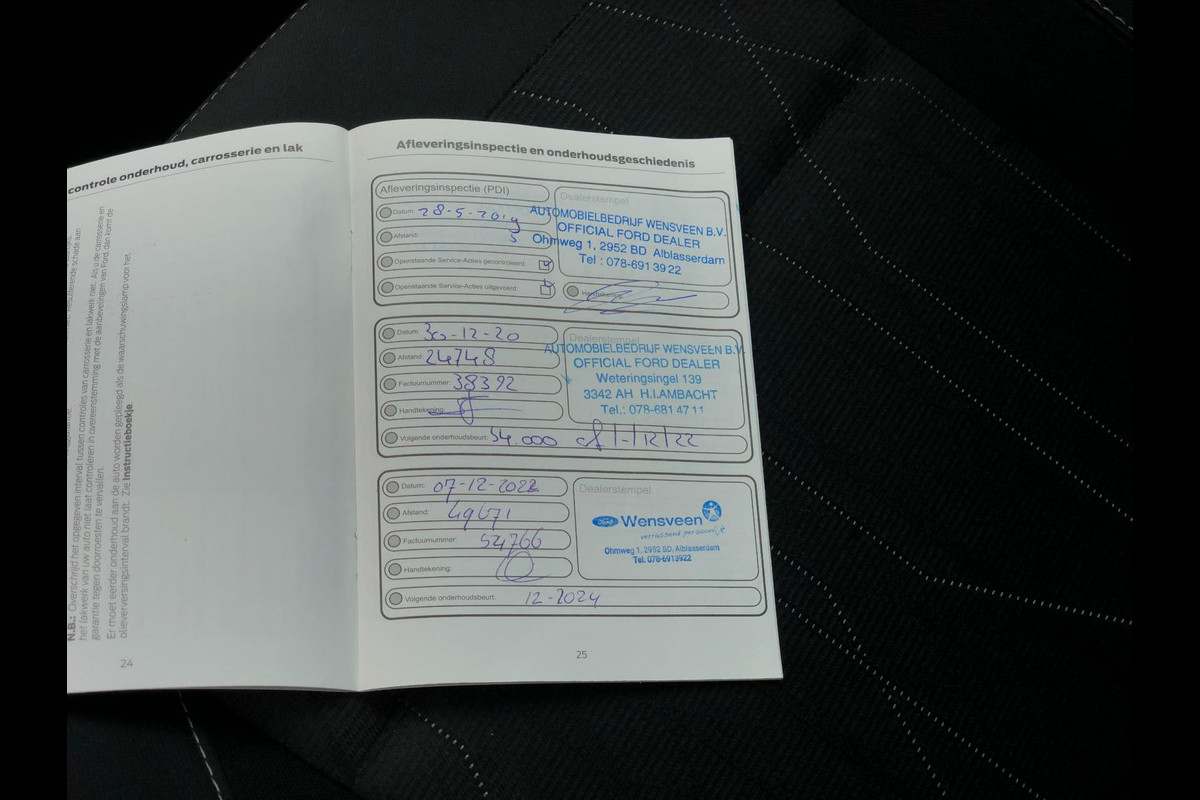 controle onderhoud, carrosserie en lak
N.B.: Overschrijd het opgegeven interval tussen controles van carrosserie en lakwerk niet. Als u de carrosserie en
het lakwerk van uw auto niet laat controleren in overeenstemming met de aanbevelingen van Ford, dan komt de
garantie tegen doorroesten te vervallen.
Er moet eerder onderhoud aan de auto worden gepleegd als de waarschuwingslamp voor het
olieverversingsinterval brandt. Zie Instructieboekje.
24
Afleveringsinspectie en onderhoudsgeschiedenis
Afleveringsinspectie (PDI)
Datum: 28-5-2019
Afstand: 5
Openstaande Service-Acties gecontroleerd:
Openstaande Service-Acties uitgevoerd:
Dealerstempel
AUTOMOBIELBEDRIJF WENSVEEN B.V.
OFFICIAL FORD DEALER
Ohmweg 1, 2952 BD Alblasserdam
Tel : 078-691 39 22
Datum: 30-12-20
Afstand: 24748
Factuurnummer: 38392
Handtekening:
Dealerstempel
AUTOMOBIELBEDRIJF WENSVEEN B.V.
OFFICIAL FORD DEALER
Weteringsingel 139
3342 AH H.I.AMBACHT
Tel.: 078-681 47 11
Volgende onderhoudsbeurt: 54.000 of 1-12/22
Datum: 07-12-2022
Afstand: 49671
Factuurnummer: 54766
Handtekening:
Dealerstempel
Ford Wensveen
verrassend persoonlijk
Ohmweg 1, 2952 BD, Alblasserdam
Tel. 078-6913922
Volgende onderhoudsbeurt: 12-2024
25